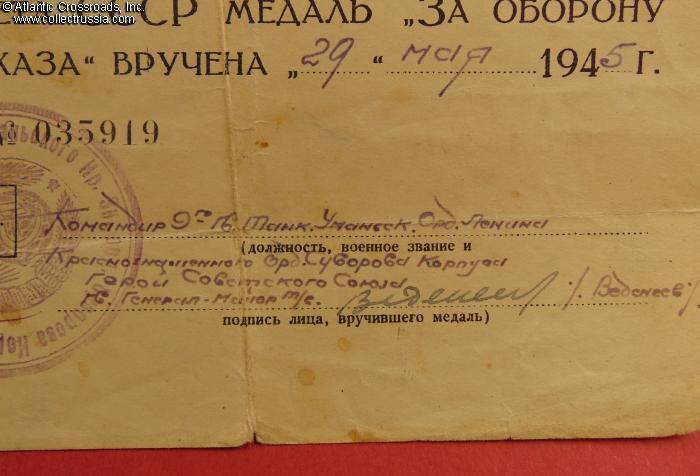 © Atlantic Crossroads, Inc.
collectrussia.com
СССР МЕДАЛЬ „ЗА ОБОРОНУ
КАЗА“ ВРУЧЕНА „29“ мая 1945 г.
№ 035919
Командир 9го Гв. Танк. Уманьск. Орд. Ленина
(должность, военное звание и
Краснознаменного Орд. Суворова Корпуса
Герой Советского Союза
Гв. Генерал-Майор т/в. Веденеев /. Веденеев /
подпись лица, вручившего медаль)